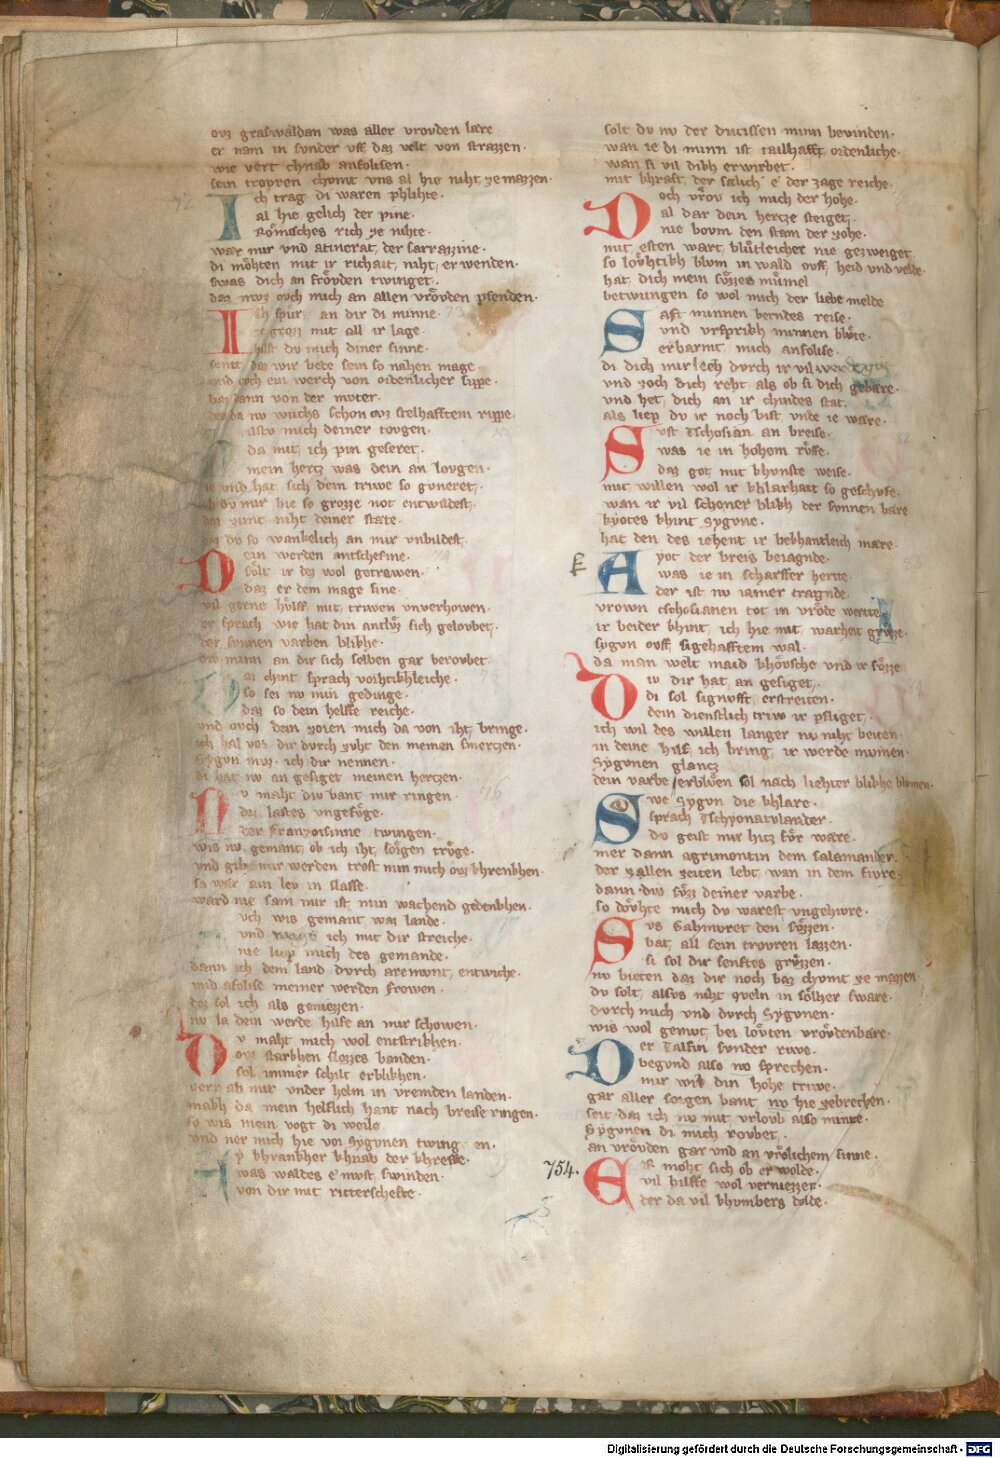 ouz graswaldan was aller vrovden lære
er nam in sunder uff daz velt von strazzen·
wie vert chnab anfolisen·
sein trovren chumt vns al hie niht ze mazzen·
Ich trag di waren phlihte·
al hie gelich der pine·
Romisches rich ze rihte·
war mir vnd atinerat, der sarrazine·
di möhten mit ir richait, niht, erwenden·
swas dich an frövden twinget·
daz mvz ovch mich an allen vrövden pfenden·
Ich spür, an dir di minne·
ze grozz mit all ir lage·
hast du mich diner sinne·
semt daz wir bede sein so nahen mage
vnd ovch ein werch von ordenlicher sippe·
baz dann von der muter·
der da nv wuchs schon ovz stelhafftem rippe·
mich deiner tovgen·
da mit, ich pin geseret·
mein hertz was dein an lovgen·
vnd hat sich dein triwe so guneret,·
ob du mir hie so grozze not entwildest,·
daz zimt niht deiner stæte·
daz du so wankelich an mir vnbildest
Dein werden antschefine·
sölt ir dez wol getrawen·
daz er dem mage sine
vil gerne hülff mit, triwen vnverhowen·
er sprach wie hat din antlvtz sich gelovbet,·
der svnnen varben blikhe·
div minn an dir sich selben gar berovbet
Daz chint sprach vorhtikhleiche·
so sei nv min gedinge·
daz so dein helffe reiche·
vnd ovch dein zoren mich da von iht, bringe·
ich hal vor dir dvrch zvht den meinen smertzen·
Sygvn mvz· ich dir nennen·
di hat nv an gesiget meinen hertzen·
Dv maht div bant mir ringen·
dez lastes vngeföge·
der Franzoisinne twingen·
wis nv gemant, ob ich iht, sorgen trüge·
vnd gib mir werden trost nim mich ovz khrenkhen·
so wær ain lev in slaffe·
ward nie sam mir ist min wachend gedenkhen·
Ovch wis gemant waz lande·
vnd ich mit dir streiche·
nie liep mich des gemande·
dann ich dem land dvrch aremvnt, entwiche·
vnd afolise meiner werden frowen·
dez sol ich als geniezzen·
nv la dein werde hilfe an mir schowen·
Dv maht mich wol entstrikhen·
ovz starkhen slozzes banden·
sol immer schilt erblikhen·
vern ab mir vnder helm in vremden landen·
makh da mein helflich hant nach breise ringen·
so wis mein vogt di weile
vnd ner mich hie vor Sygvnen twing en·
Ay khrankher khnab der khrefte·
was waldes e mvst swinden·
von dir mit ritterschefte·
solt dv nv der ducissen minn bevinden·
wan ie di minn ist tailhafft, ordenliche·
wan si vil dikh erwirbet·
mit khraft, der sælich e der zage reiche·
Doch vröv ich mich der hohe·
al dar dein hertze steiget·
nie bovm den stam der zohe·
mit esten wart, blütleicher nie gezweiget
so lövhtikh blvm in wald ovff, heid vnd velde·
hat, dich mein süzzes mümel
betwungen so wol mich der liebe melde
Saft minnen berndes reise·
vnd vrsprikh minnen blüte·
erbarmt, mich anfolise·
di dich mir lech dvrch ir vil
vnd zoch dich reht, als ob si dich gebære·
vnd het, dich an ir chindes stat·
als liep dv ir noch bist, vnde ie wære·
Svst Tschosian an breise·
was ie in hohem rüffe·
daz got mit khvnste weise·
mit willen wol ir khlarhait so geschvfe·
wan ir vil schöner blikh der svnnen bære
kyotes khint Sygvne·
hat den des iehent ir bekhantleich mære·
Kayot der breis beiagnde·
was ie in scharffer herte·
der ist nv iamer tragnde·
vrown tschosianen tot in vröde wertte
ir beider khint, ich hie mit, warheit grüze·
sygvn ovff sigehafftem wal·
da man welt maid khövsche vnd ir süzze
Div dir hat, an gesiget,·
di sol signvfft erstreiten·
dein dienstlich triw ir pfliget,·
ich wil des willen langer nv niht beiten·
in deine hilf ich bring, ir werde mvmen·
Sygvnen glantz
dein varbe erblwen sol nach liehter blikhe blvmen·
Swe Sygvn die khlare·
sprach Tschyonatvlander·
dv geist mir hitz für ware·
mer dann agrimontin dem salamander·
der zallen zeiten lebt, wan in dem fivre·
dann div süzz deiner varbe·
so dövhte mich dv wærest vngehivre·
Svs Gahmvret den süzzen·
bat, all sein trovren lazzen·
si sol dir senftes grüzzen·
nv bieten daz dir noch baz chvmt ze mazzen·
dv solt, alsvs niht queln in sölher swære·
dvrch mich vnd dvrch Sygvnen·
wis wol gemvt, bei lövten vrövdenbære·
Der Talfin svnder rwe·
begvnd also nv sprechen·
mir wil din hohe triwe·
gar aller sorgen bant, nv hie zebrechen·
seit daz ich nv mit vrlovb also minne·
Sygvnen di mich rovbet·
an vrövden gar vnd an vrölichem sinne·
754·
Es moht sich ob er wolde·
vil hilffe wol verniezzen·
der da vil khvmbers dolde·
Digitalisierung gefördert durch die Deutsche Forschungsgemeinschaft - DFG